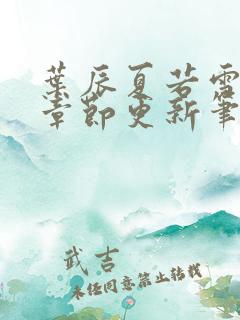 葉辰夏若雪
章節更新筆
武吉
未经同意禁止转载